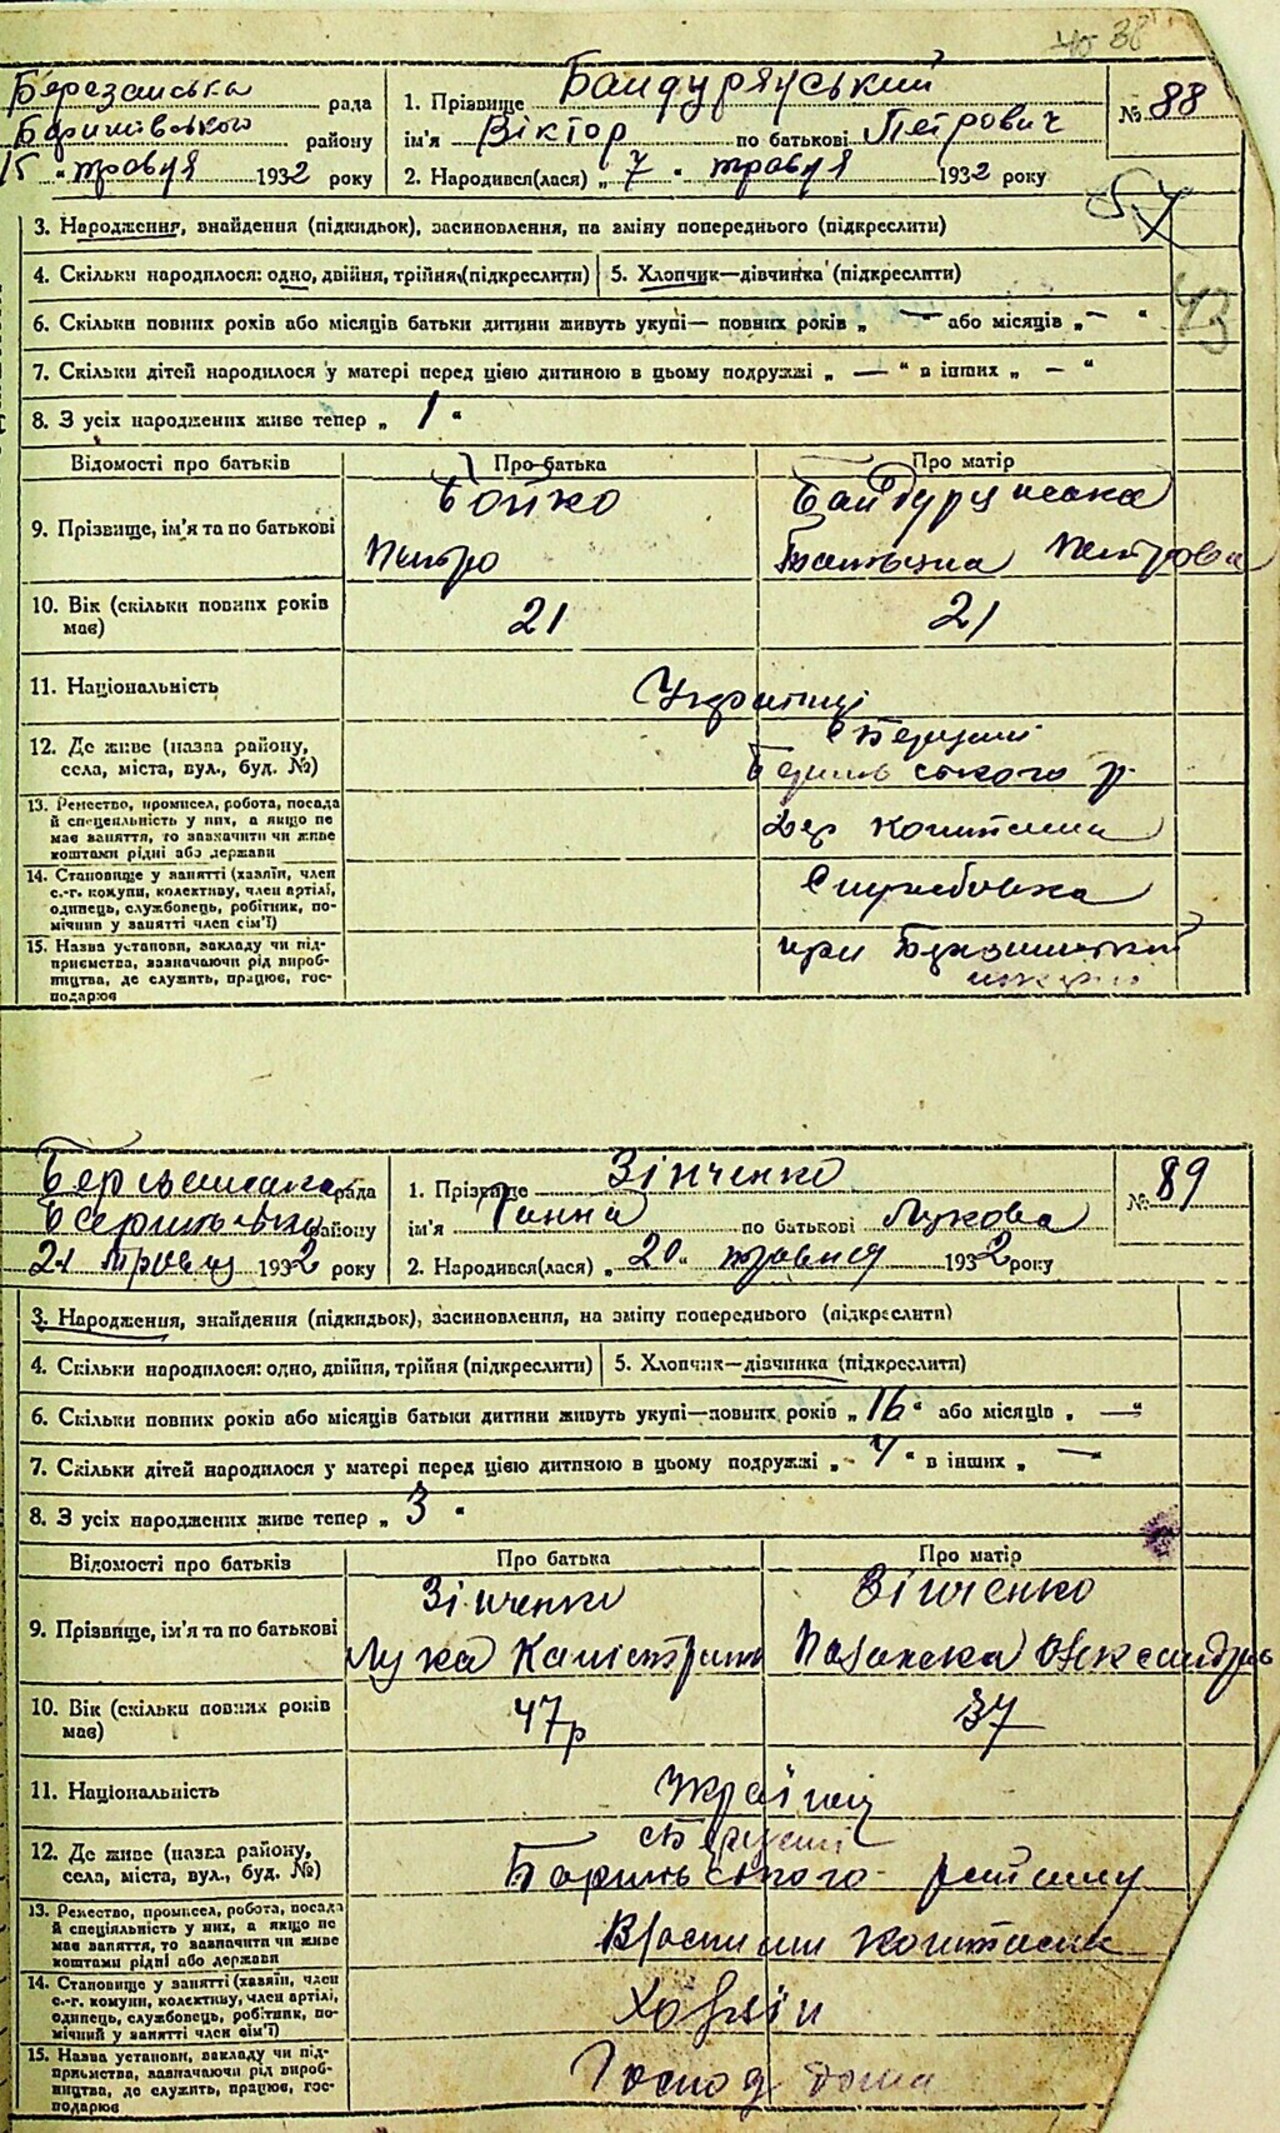 38
Березанська рада
Баришівського району
15 " травня 1932 року
1. Прізвище Бандурянський
ім'я Віктор по батькові Петрович
2. Народився(лася) „ 7 " травня 1932 року
№ 88
3. Народження, знайдення (підкидьок), засиновлення, на зміну попереднього (підкреслити)
4. Скільки народилося: одно, двійня, трійня (підкреслити) 5. Хлопчик—дівчинка (підкреслити)
43
6. Скільки повних років або місяців батьки дитини живуть укупі— повних років „ — " або місяців „ — "
7. Скільки дітей народилося у матері перед цією дитиною в цьому подружжі „ — " в інших „ — "
8. З усіх народжених живе тепер „ 1 "
Відомості про батьків Про батька Про матір
9. Прізвище, ім'я та по батькові
Бойко
Петро
Татьяна Петрова
10. Вік (скільки повних років
має)
21 21
11. Національність
Українці
12. Де живе (назва району,
села, міста, вул., буд. №)
с Березані
р.
13. Ремество, промисел, робота, посада
й спеціяльність у них, а якщо не
має заняття, то зазначити чи живе
коштами рідні або держави
Дер коштами
14. Становище у занятті (хазяїн, член
с.-г. комуни, колективу, член артілі,
одинець, службовець, робітник, по-
мічник у занятті член сім'ї)
Службовка
15. Назва установи, закладу чи під-
приємства, зазначаючи рід вироб-
ництва, де служить, працює, гос-
подарює
при
Березанська рада
району
21 травня 1932 року
1. Прізвище Зінченко
ім'я Ганна по батькові Лукова
2. Народився(лася) „ 20 " травня 1932 року
№ 89
3. Народження, знайдення (підкидьок), засиновлення, на зміну попереднього (підкреслити)
4. Скільки народилося: одно, двійня, трійня (підкреслити) 5. Хлопчик—дівчинка (підкреслити)
6. Скільки повних років або місяців батьки дитини живуть укупі—повних років „ 16 " або місяців „ — "
7. Скільки дітей народилося у матері перед цією дитиною в цьому подружжі „ " в інших „ — "
8. З усіх народжених живе тепер „ 3 "
Відомості про батьків Про батька Про матір
9. Прізвище, ім'я та по батькові
Зінченко Зінченко
Лука
10. Вік (скільки повних років
має)
47р 37
11. Національність
Українці
12. Де живе (назва району,
села, міста, вул., буд. №)
с Березані
району
13. Ремество, промисел, робота, посада
й спеціяльність у них, а якщо не
має заняття, то зазначити чи живе
коштами рідні або держави
Власними коштами
14. Становище у занятті (хазяїн, член
с.-г. комуни, колективу, член артілі,
одинець, службовець, робітник, по-
мічний у занятті член сім'ї)
Хазяїн
15. Назва установи, закладу чи під-
приємства, зазначаючи рід вироб-
ництва, де служить, працює, гос-
подарює
Господ дома